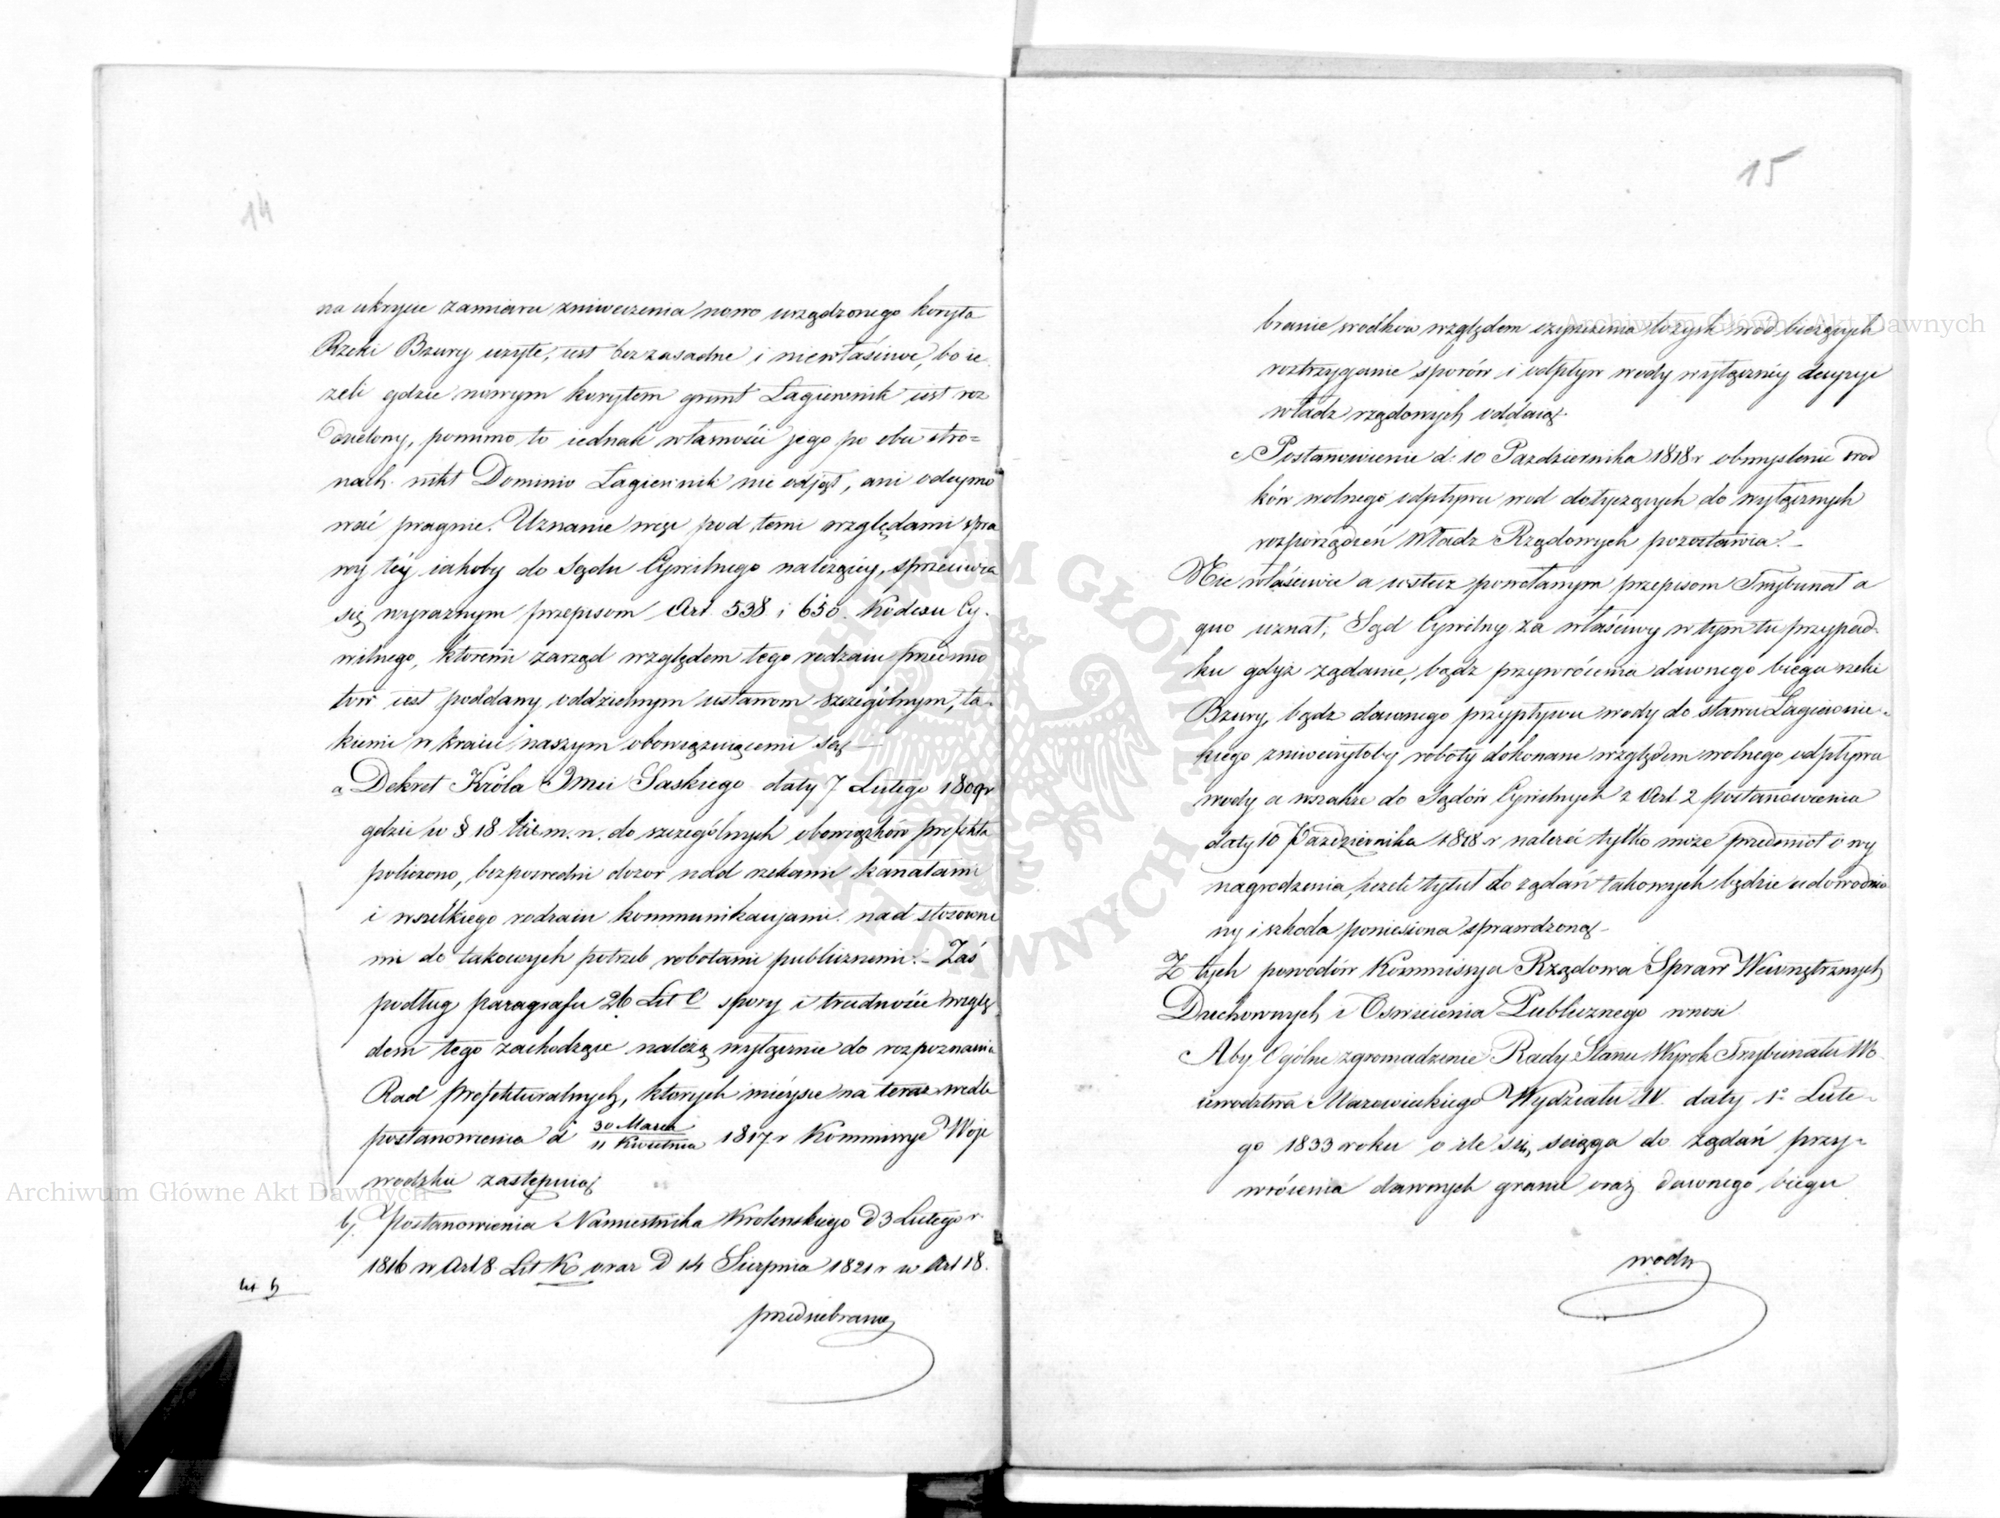 14
na ukrycie zamiaru zniweczenia nowo urządzonego koryta
Rzeki Bzury użyte, iest bezzasadne i niewłaściwe, bo ie
żeli gdzie nowym korytem grunt Łagiewnik iest roz
dzielony, pomimo to iednak własności jego po obu stro=
nach nikt Dominio Łagiewnik nie odjął, ani odeymo
wać pragnie. Uznanie więc pod temi względami spra
wy téy iakoby do Sądu Cywilnego należącéy, sprzeciwia
się wyraźnym przepisom Art. 538 i 650. Kodexu Cy-
wilnego, któremi zarząd względem tego rodzaiu przedmio
tów iest poddany oddzielnym ustawom szczególnym, ta-
kiemi w kraiu naszym obowiązuiącemi są —
a Dekret Króla Jmci Saskiego daty 7 Lutego 1809r
gdzie w § 18 lit. m. n. do szczególnych obowiązków prefekta
policzono, bezpośredni dozór nad rzekami kanałami
i wszelkiego rodzaiu kommunikacjami nad stosowne
mi do takowych potrzeb robotami publicznemi. – Zaś
podług paragrafu 26 Lit C spory i trudności wzglę
dem tego zachodzące należą wyłącznie do rozpoznania
Rad prefekturalnych, których mieysce na teraz wedle
postanowienia d 30 Marca / 11 Kwietnia 1817 r Kommissye Woje
wodzkie zastępuią
b, Postanowienia Namiestnika Krolewskiego D 3 Lutego r
1816 w Art 8 Lit K oraz D 14 Sierpnia 1821 r w Art 18.
lit b
przedsiebranie
15
branie srodków względem czyszczenia łożysk wód bieżących
roztrzyganie sporów i odpływ wody wyłącznéy decyzyi
władz rządowych oddaią.
c, Postanowienie d: 10 Pazdziernika 1818 r obmyslenie srod
ków wolnego odpływu wod dotyczących do wyłącznych
rozporządzeń Władz Rządowych pozostawia. –
Nie właściwie a wstecz powołanym przepisom Trybunał a
quo uznał, Sąd Cywilny za właściwy w tym tu przypad-
ku gdyż żądanie, bądz przywrócenia dawnego biegu rzeki
Bzury, bądz dawnego przypływu wody do stawu Łagiewnic-
kiego zniweczyłoby roboty dokonane względem wolnego odpływu
wody a wszakże do Sądów Cywilnych z Art 2 postanowienia
daty 10 Pazdziernika 1818 r należeć tylko może przedmiot o wy
nagrodzenia, ieżeli tytuł do żądań takowych będzie udowodnio
ny i szkoda poniesiona sprawdzoną –
Z tych powodów Kommissya Rządowa Spraw Wewnętrznych
Duchownych i Oswiecenia Publicznego wnosi
Aby Ogólne zgromadzenie Rady Stanu Wyrok Trybunału Wo
iewodztwa Mazowieckiego Wydziału IV. daty 1º Lute-
go 1833 roku o ile się sciąga do żądań przy-
wrócenia dawnych granic oraz dawnego biegu
wody
Archiwum Główne Akt Dawnych
Archiwum Główne Akt Dawnych
Archiwum Główne Akt Dawnych
ARCHIWUM GŁÓWNE AKT DAWNYCH